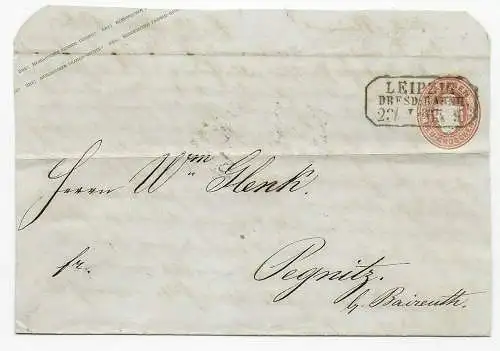 LEIPZIG
DRESD. BAHNH.
Herrn Wm Glenk.
fr.
Pegnitz.
b. Baireuth.